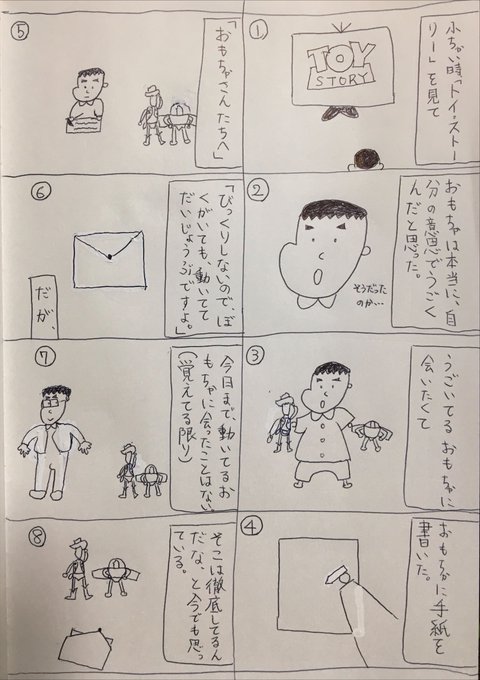 ①
小ちゃい時「トイ・ストー
リー」を見て
TOY
STORY
②
おもちゃは本当に、自
分の意思でうごく
んだと思った。
そうだった
のか…
③
うごいてるおもちゃに
会いたくて
④
おもちゃに手紙を
書いた。
⑤
「おもちゃさんたちへ」
⑥
「びっくりしないので、ぼ
くがいても、動いてて
だいじょうぶですよ。」
だが、
⑦
今日まで、動いてるお
もちゃに会ったことはない
(覚えてる限り)
⑧
そこは徹底してるん
だな、と今でも思っ
ている。